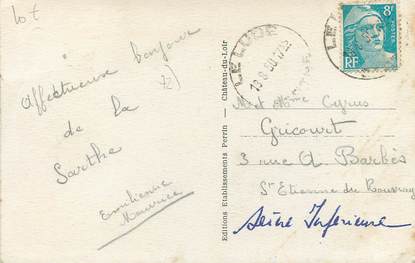 lot
Affectueux bonjour
de la
Sarthe
Emilienne
Maurice
Editions Etablissements Perrin — Château-du-Loir
LE LUDE
8F
POSTES
RF
M. et Mme Cyrus
Gricourt
3 rue A. Barbès
St Etienne du Rouvray
Seine Inférieure